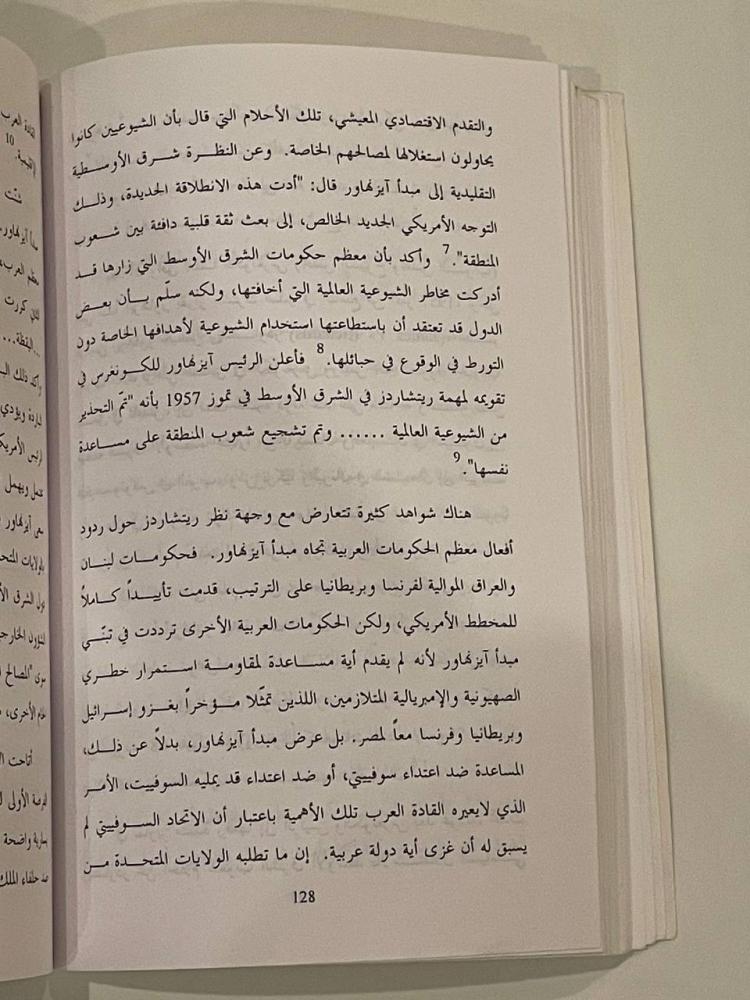 والتقدم الاقتصادي المعيشي، تلك الأحلام التي قال بأن الشيوعيين كانوا
يحاولون استغلالها لمصالحهم الخاصة. وعن النظرة شرق الأوسطية
التقليدية إلى مبدأ آيزنهاور قال: "أدت هذه الانطلاقة الجديدة، وذلك
التوجه الأمريكي الجديد الخالص، إلى بعث ثقة قلبية دافئة بين شعوب
المنطقة".7 وأكد بأن معظم حكومات الشرق الأوسط التي زارها قد
أدركت مخاطر الشيوعية العالمية التي أخافتها، ولكنه سلّم بأن بعض
الدول قد تعتقد أن باستطاعتها استخدام الشيوعية لأهدافها الخاصة دون
التورط في الوقوع في حبائلها.8 فأعلن الرئيس آيزنهاور للكونغرس في
تقويمه لمهمة ريتشاردز في الشرق الأوسط في تموز 1957 بأنه "تمّ التحذير
من الشيوعية العالمية ...... وتم تشجيع شعوب المنطقة على مساعدة
نفسها".9
هناك شواهد كثيرة تتعارض مع وجهة نظر ريتشاردز حول ردود
أفعال معظم الحكومات العربية تجاه مبدأ آيزنهاور. فحكومات لبنان
والعراق الموالية لفرنسا وبريطانيا على الترتيب، قدمت تأييداً كاملاً
للمخطط الأمريكي، ولكن الحكومات العربية الأخرى ترددت في تبنّي
مبدأ آيزنهاور لأنه لم يقدم أية مساعدة لمقاومة استمرار خطري
الصهيونية والإمبريالية المتلازمين، اللذين تمثّلا مؤخراً بغزو إسرائيل
وبريطانيا وفرنسا معاً لمصر. بل عرض مبدأ آيزنهاور، بدلاً عن ذلك،
المساعدة ضد اعتداء سوفييتي، أو ضد اعتداء قد يمليه السوفييت، الأمر
الذي لايعيره القادة العرب تلك الأهمية باعتبار أن الاتحاد السوفييتي لم
يسبق له أن غزى أية دولة عربية. إن ما تطلبه الولايات المتحدة من
128